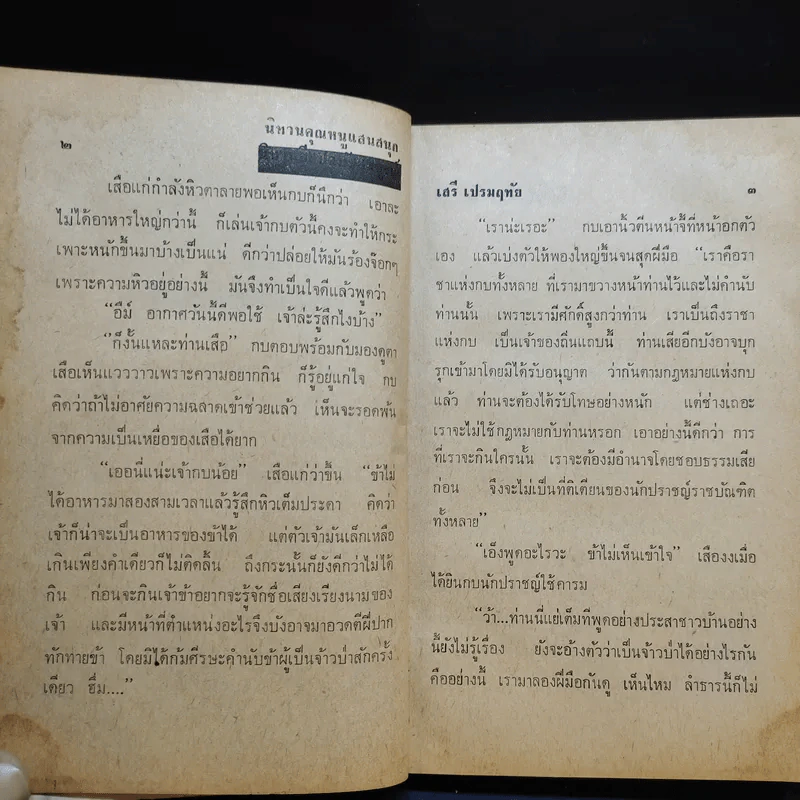 ๒
นิทานคุณหนูแสนสนุก
เสือแก่กำลังหิวตาลายพอเห็นกบก็นึกว่า เอาละ
ไม่ได้อาหารใหญ่กว่านี้ ก็เล่นเจ้ากบตัวนี้คงจะทำให้กระ
เพาะหนักขึ้นมาบ้างเป็นแน่ ดีกว่าปล่อยให้มันร้องจ๊อกๆ
เพราะความหิวอยู่อย่างนี้ มันจึงทำเป็นใจดีแล้วพูดว่า
“อืม์ อากาศวันนี้ดีพอใช้ เจ้าล่ะรู้สึกไงบ้าง”
“ก็งั้นแหละท่านเสือ” กบตอบพร้อมกับมองดูตา
เสือเห็นแวววาวเพราะความอยากกิน ก็รู้อยู่แก่ใจ กบ
คิดว่าถ้าไม่อาศัยความฉลาดเข้าช่วยแล้ว เห็นจะรอดพ้น
จากความเป็นเหยื่อของเสือได้ยาก
“เออนี่แน่ะเจ้ากบน้อย” เสือแก่ว่าขึ้น “ข้าไม่
ได้อาหารมาสองสามเวลาแล้วรู้สึกหิวเต็มประดา คิดว่า
เจ้าก็น่าจะเป็นอาหารของข้าได้ แต่ตัวเจ้ามันเล็กเหลือ
เกินเพียงคำเดียวก็ไม่ติดลิ้น ถึงกระนั้นก็ยังดีกว่าไม่ได้
กิน ก่อนจะกินเจ้าข้าอยากจะรู้จักชื่อเสียงเรียงนามของ
เจ้า และมีหน้าที่ตำแหน่งอะไรจึงบังอาจมาอวดดีผี่ปาก
ทักทายข้า โดยมิได้ก้มศีรษะคำนับข้าผู้เป็นจ้าวป่าสักครั้ง
เดียว ฮึ่ม....”
เสรี เปรมฤทัย
๓
“เราน่ะเรอะ” กบเอานิ้วตีนหน้าจี้ที่หน้าอกตัว
เอง แล้วเบ่งตัวให้พองใหญ่ขึ้นจนสุดฝีมือ “เราคือรา
ชาแห่งกบทั้งหลาย ที่เรามาขวางหน้าท่านไว้และไม่คำนับ
ท่านนั้น เพราะเรามีศักดิ์สูงกว่าท่าน เราเป็นถึงราชา
แห่งกบ เป็นเจ้าของถิ่นแถบนี้ ท่านเสียอีกบังอาจบุก
รุกเข้ามาโดยมิได้รับอนุญาต ว่ากันตามกฎหมายแห่งกบ
แล้ว ท่านจะต้องได้รับโทษอย่างหนัก แต่ช่างเถอะ
เราจะไม่ใช้กฎหมายกับท่านหรอก เอาอย่างนี้ดีกว่า การ
ที่เราจะกินใครนั้น เราจะต้องมีอำนาจโดยชอบธรรมเสีย
ก่อน จึงจะไม่เป็นที่ติเตียนของนักปราชญ์ราชบัณฑิต
ทั้งหลาย”
“เอ็งพูดอะไรวะ ข้าไม่เห็นเข้าใจ” เสืองงเมื่อ
ได้ยินกบนักปราชญ์ใช้คารม
“ว้า...ท่านนี่แย่เต็มทีพูดอย่างประสาชาวบ้านอย่าง
นี้ยังไม่รู้เรื่อง ยังจะอ้างตัวว่าเป็นจ้าวป่าได้อย่างไรกัน
คืออย่างนี้ เรามาลองฝีมือกันดู เห็นไหม ลำธารนี้ก็ไม่